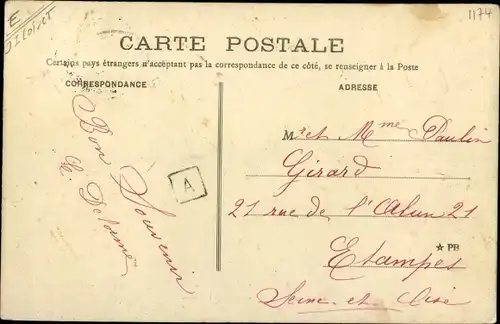 E
1174
CARTE POSTALE
Certains pays étrangers n'acceptant pas la correspondance de ce côté, se renseigner à la Poste
CORRESPONDANCE
ADRESSE
Bon Souvenir
A
Mr et Mme Paulin
Girard
21 rue de l'Alun 21
★ PB
Etampes
Seine-et-Oise